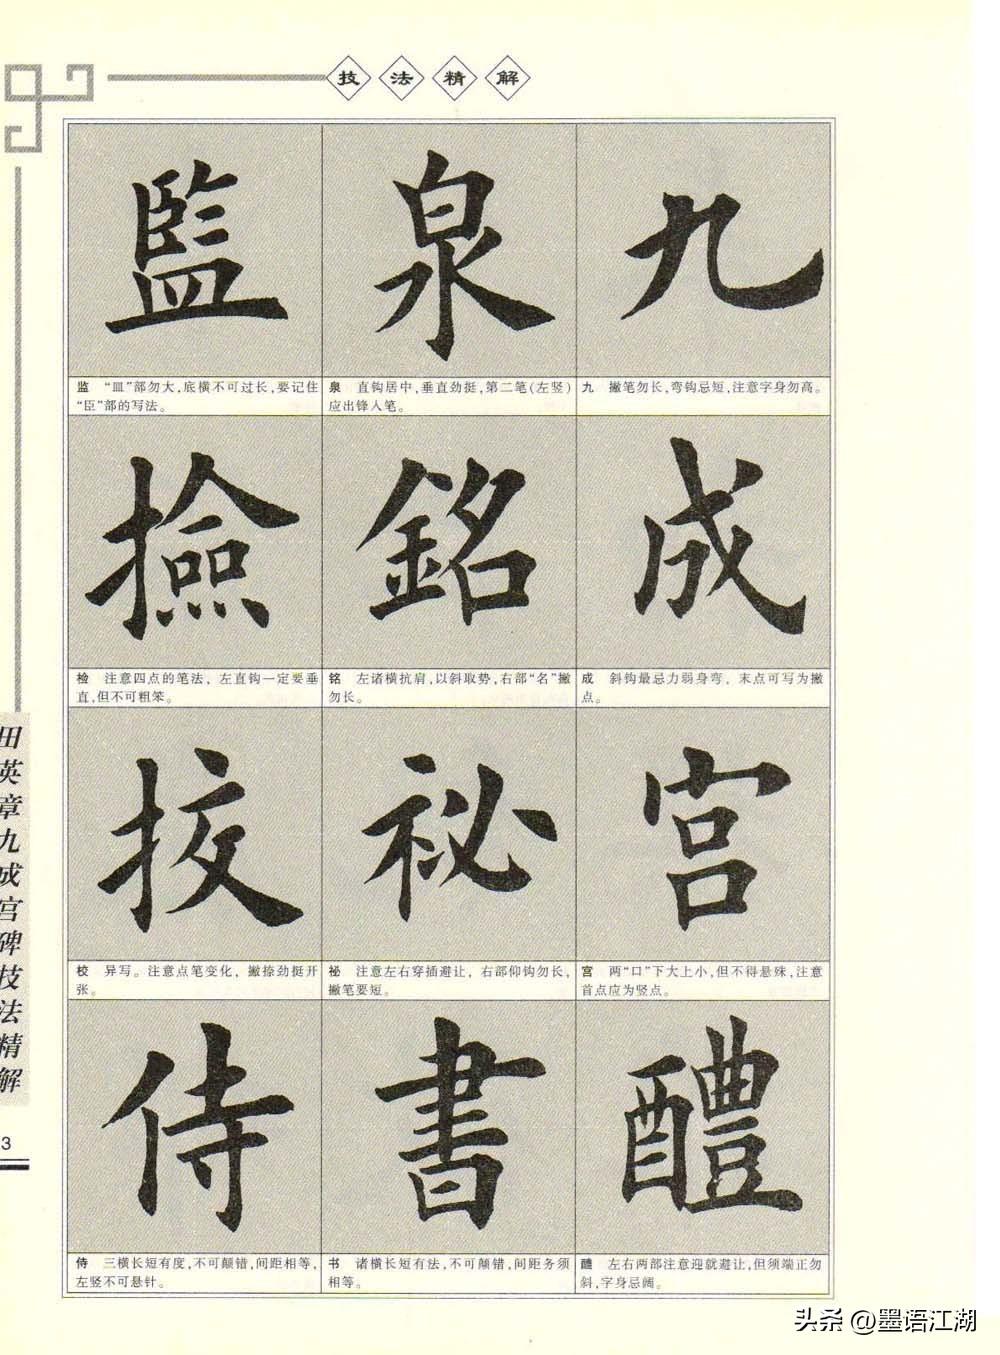 技法精解
監
泉
九
监 “皿”部勿大,底横不可过长,要记住
“臣”部的写法。
泉 直钩居中,垂直劲挺,第二笔(左竖)
应出锋入笔。
九 撇笔勿长,弯钩忌短,注意字身勿高。
撿
銘
成
检 注意四点的笔法,左直钩一定要垂
直,但不可粗笨。
铭 左诸横抗肩,以斜取势,右部“名”撇
勿长。
成 斜钩最忌力弱身弯,末点可写为撇
点。
挍
祕
宫
校 异写。注意点笔变化,撇捺劲挺开
张。
祕 注意左右穿插避让,右部仰钩勿长,
撇笔要短。
宫 两“口”下大上小,但不得悬殊,注意
首点应为竖点。
侍
書
醴
侍 三横长短有度,不可颠错,间距相等,
左竖不可悬针。
书 诸横长短有法,不可颠错,间距务须
相等。
醴 左右两部注意迎就避让,但须端正勿
斜,字身忌阔。
田英章九成宫碑技法精解
3
头条 @墨语江湖